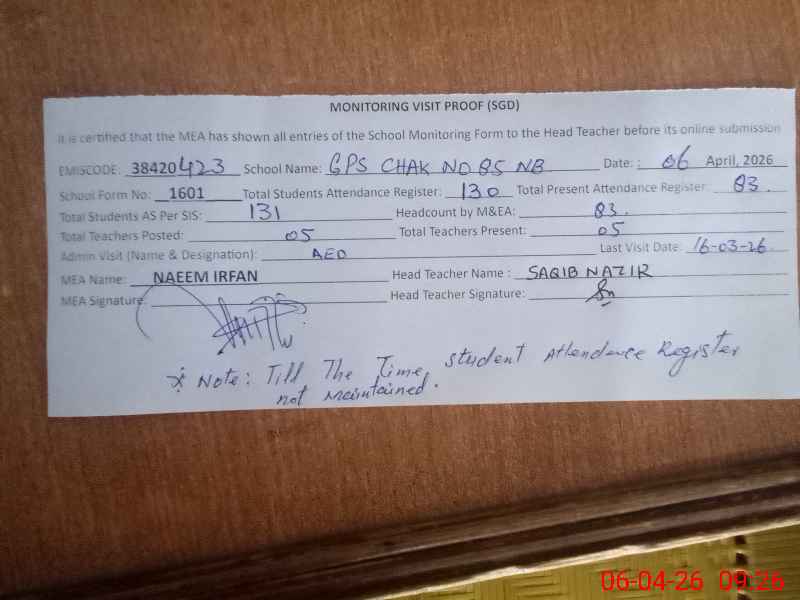 MONITORING VISIT PROOF (SGD)
It is certified that the MEA has shown all entries of the School Monitoring Form to the Head Teacher before its online submission
EMISCODE: 38420423 School Name: GPS CHAK NO 85 NB Date: : 06 April, 2026
School Form No: 1601 Total Students Attendance Register: 130 Total Present Attendance Register: 83.
Total Students AS Per SIS: 131 Headcount by M&EA: 83.
Total Teachers Posted: 05 Total Teachers Present: 05
Admin Visit (Name & Designation): AEO Last Visit Date: 16-03-26
MEA Name: NAEEM IRFAN Head Teacher Name : SAQIB NAZIR
MEA Signature: Head Teacher Signature:
* Note: Till The Time, Student Attendence Register
not maintained.
06-04-26 09:26